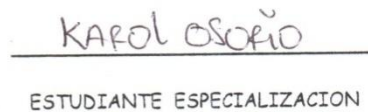 KAROL OSORIO
ESTUDIANTE ESPECIALIZACION